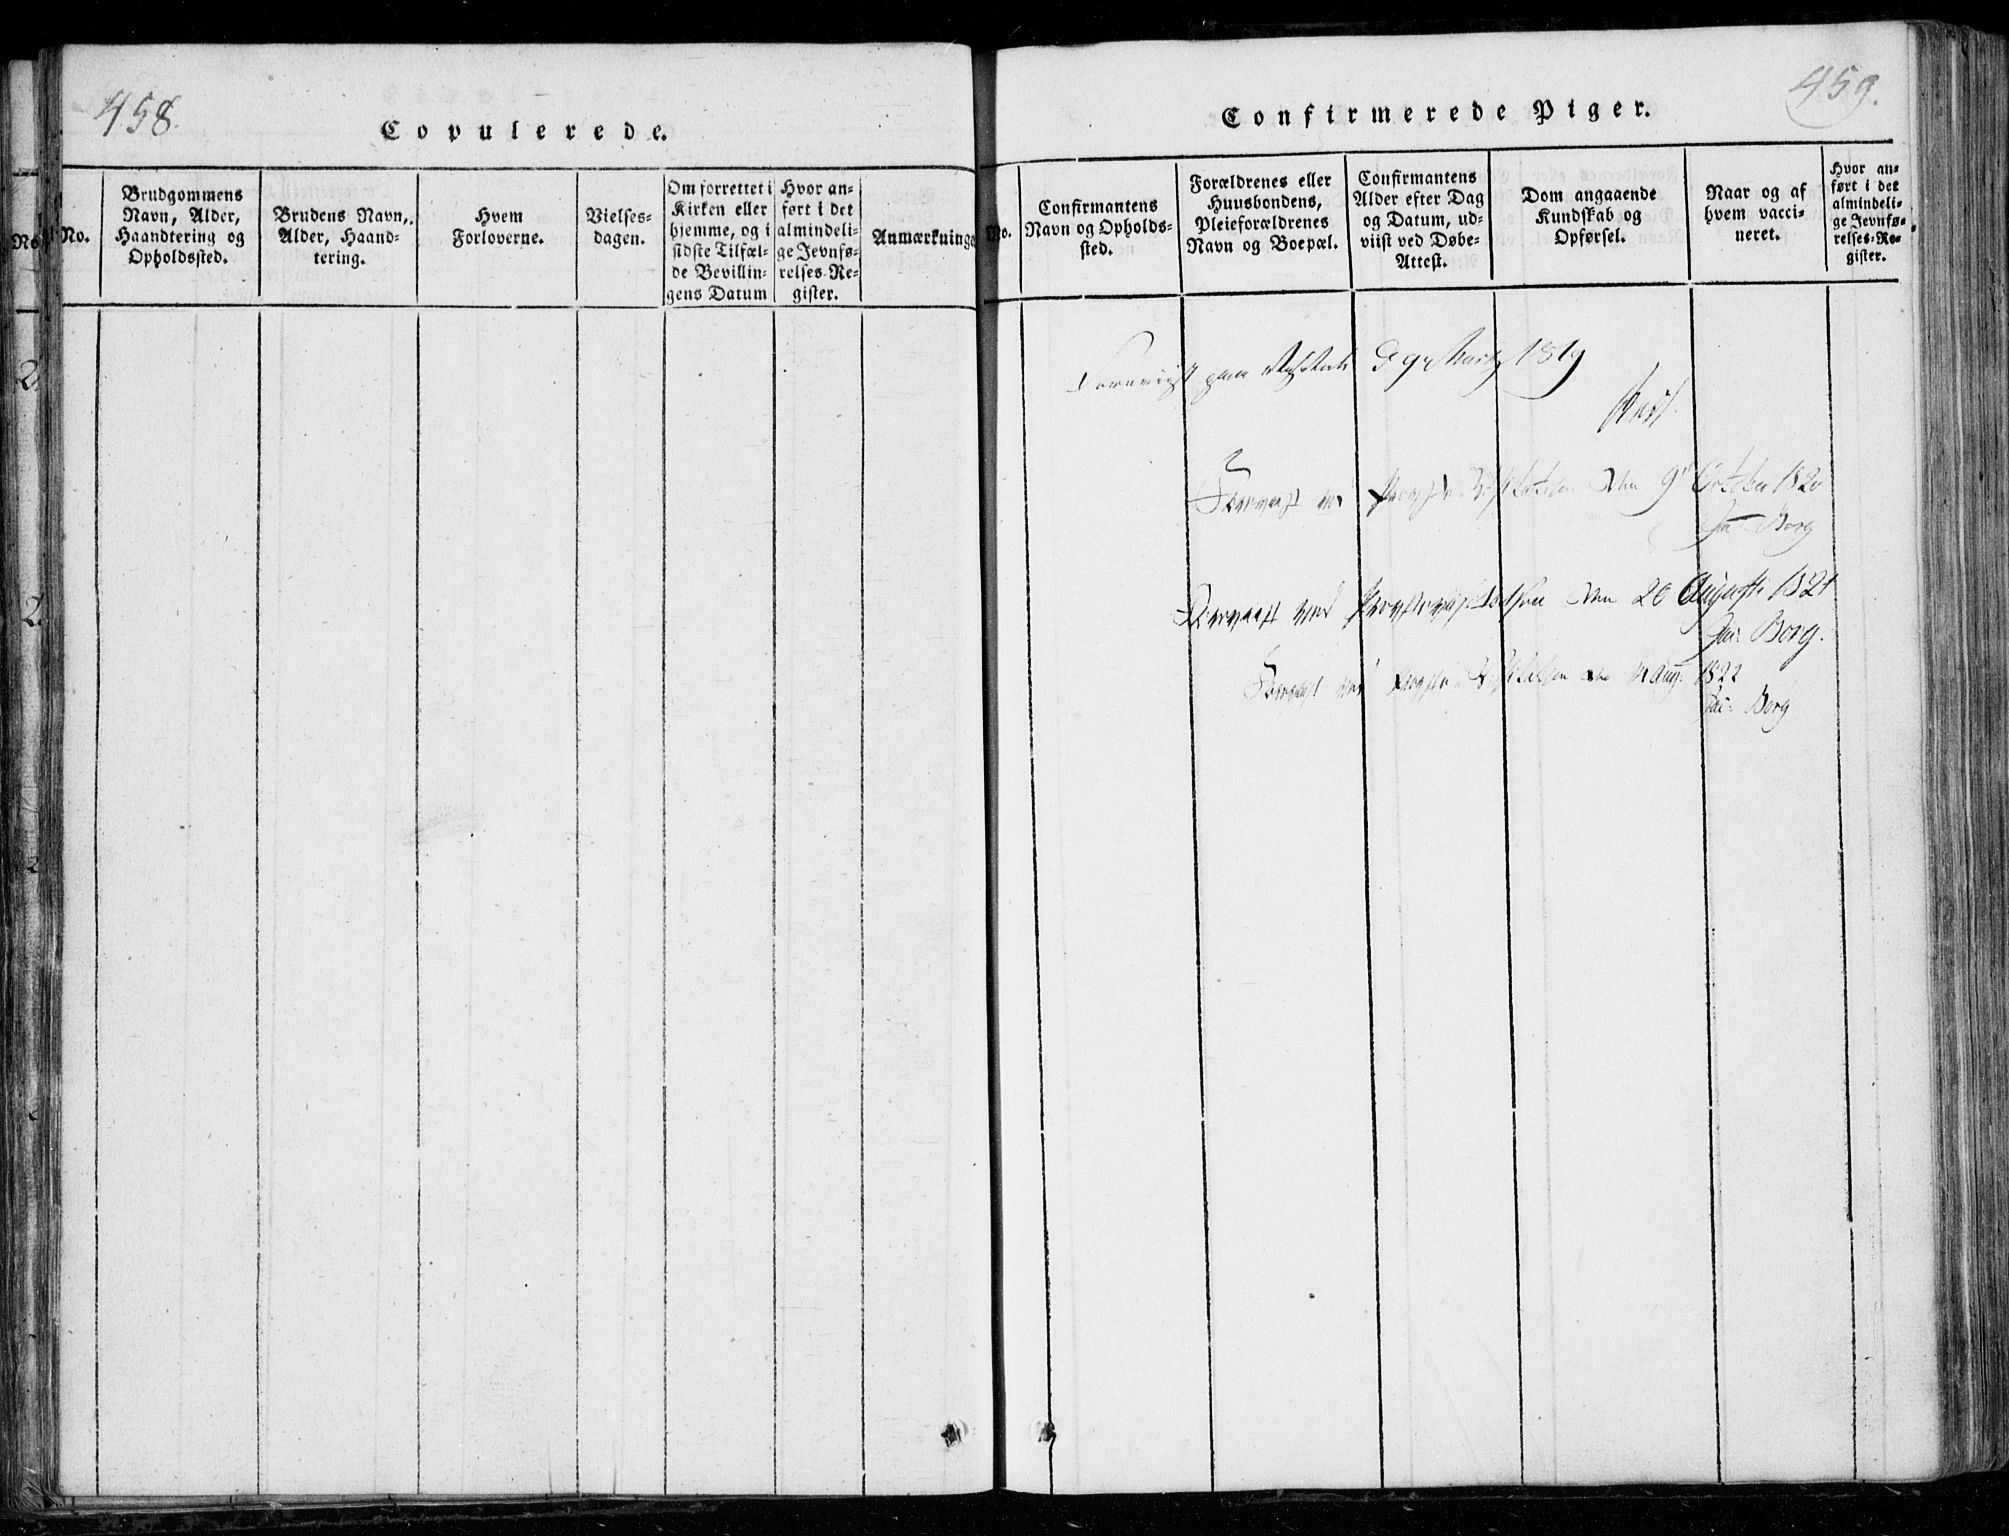 458.
Copulerede.
No.
Brudgommens
Navn, Alder,
Haandtering og
Opholdssted.
Brudens Navn,
Alder, Haand-
tering.
Hvem
Forloverne.
Vielses-
dagen.
Om forrettet i
Kirken eller
hjemme, og i
sidste Tilfæl-
de Bevillin-
gens Datum
Hvor an-
ført i det
almindeli-
ge Jevnfø-
relses-Re-
gister.
Anmærkninge
459.
Confirmerede Piger.
No.
Confirmantens
Navn og Opholds-
sted.
Forældrenes eller
Huusbondens,
Pleieforældrenes
Navn og Boepæl.
Confirmantens
Alder efter Dag
og Datum, ud-
viist ved Døbe-
Attest.
Dom angaaende
Kundskab og
Opførsel.
Naar og af
hvem vacci-
neret.
Hvor an-
ført i det
almindeli-
ge Jevnfø-
relses-Re-
gister.
Foreviist paa 1819
den 9 October 1820
Borg
ved Provstevisitatsen den 20 Augusti 1821
Jac: Borg.
ved Aug: 1822
Jac: Borg